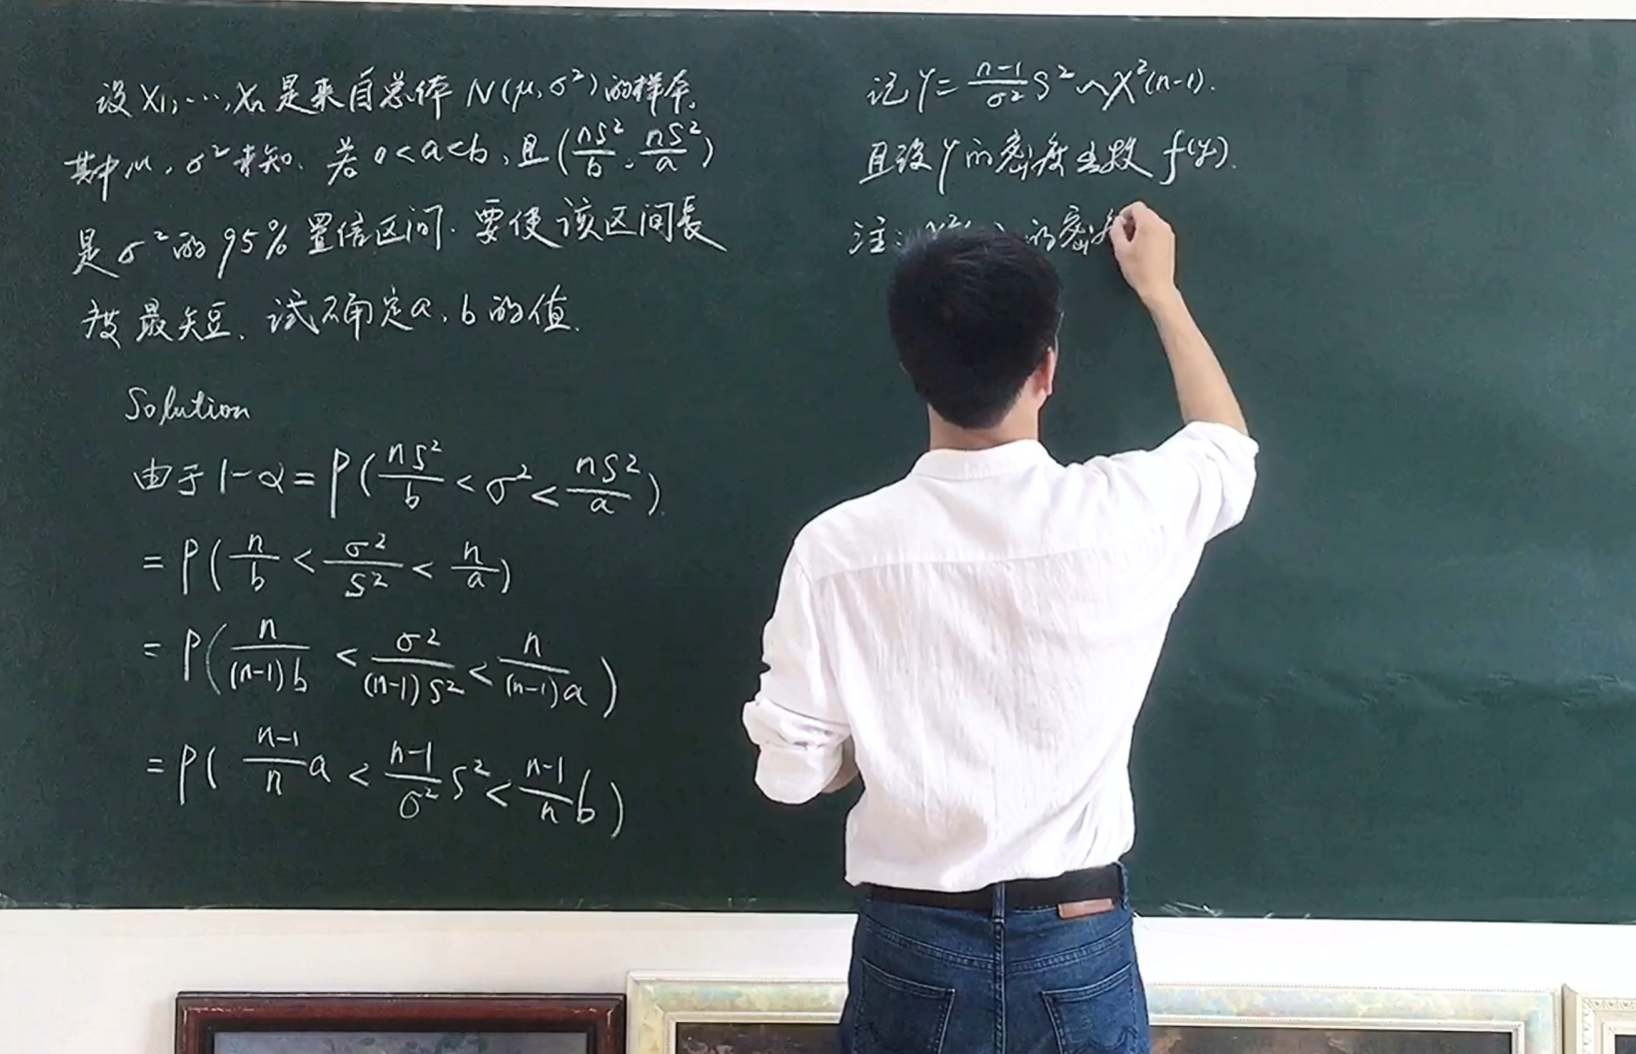 设X₁,…,Xₙ是来自总体N(μ,σ²)的样本,
其中μ,σ²未知.若0<a<b,且(nS²/b,nS²/a)
是σ²的95%置信区间.要使该区间长
度最短,试确定a,b的值.
Solution
由于1-α=P(nS²/b<σ²<nS²/a).
=P(n/b<σ²/S²<n/a)
=P(n/((n-1)b)<σ²/((n-1)S²)<n/((n-1)a))
=P((n-1)/n a<(n-1)/σ² S²<(n-1)/n b)
记Y=(n-1)/σ² S²~χ²(n-1).
且设Y的密度函数f(y).
注: 的密